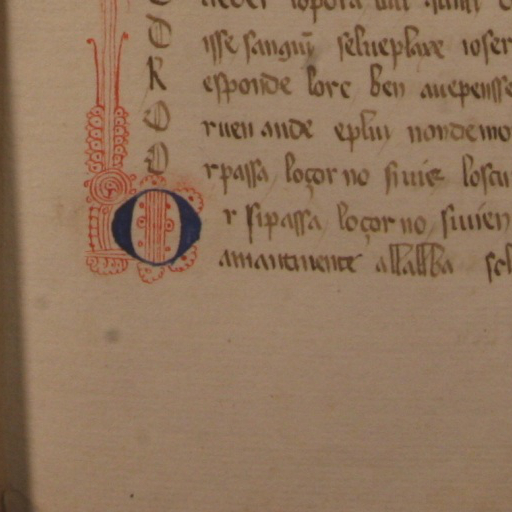 D isse sanguĩ selueplaxe ioser
R esponde lore ben auepensse
O ruen ande eplui nondemo
O rpassa loçor no siuiē loscu
O r sipassa loçor no siuien
amantinente allalba sel